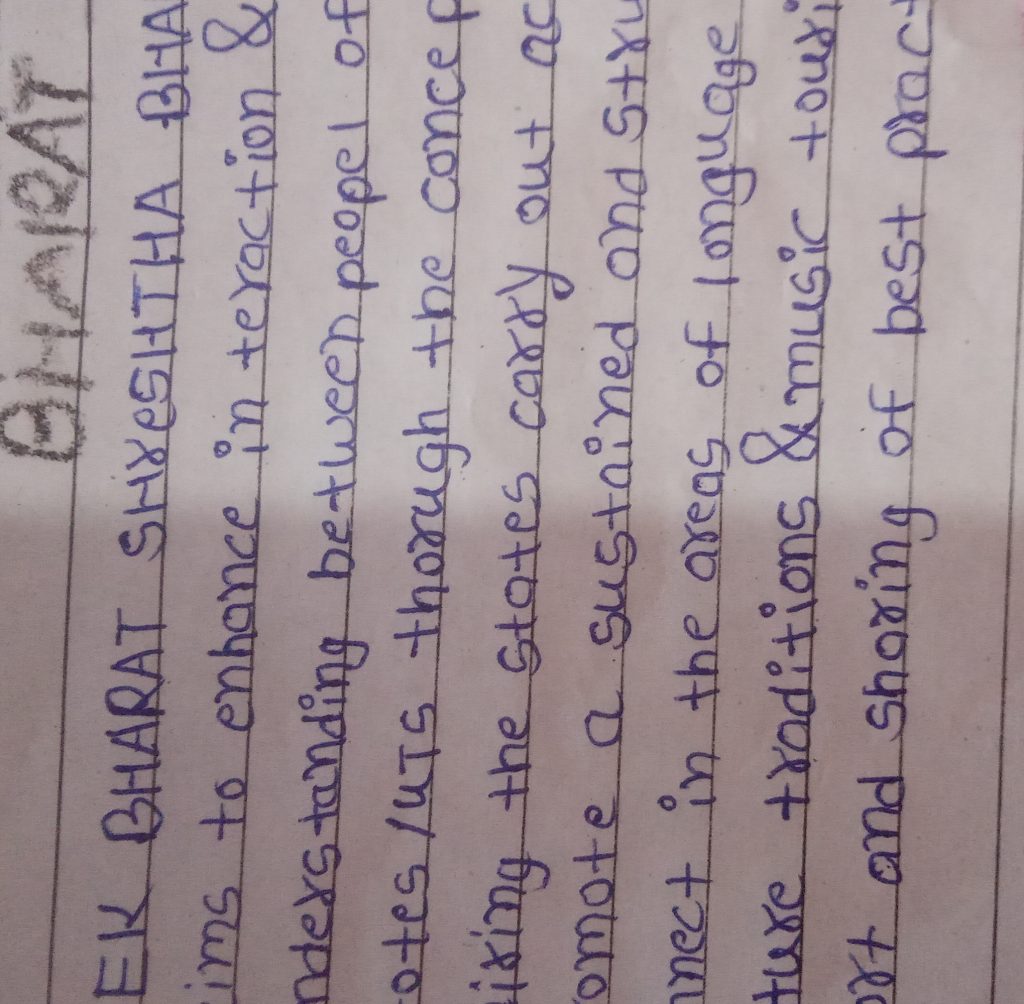 BHARAT
EK BHARAT SHRESHTHA BHA
ims to enhance in teraction &
nderstanding between peopel of
otes/UTS thorugh the concep
iring the states carry out ac
omote a sustained and stru
nnect in the areas of language
ture traditions & music touri
ort and sharing of best pract